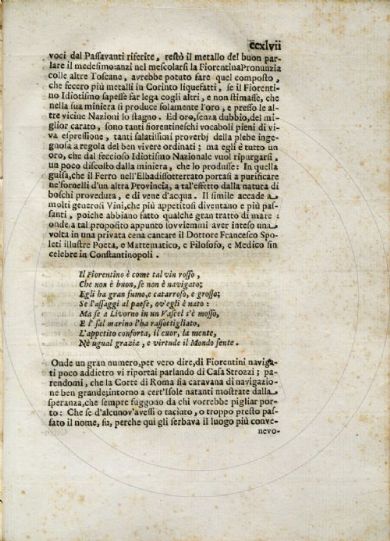 ccxlvii
voci dal Passavanti riferite, restò il metallo del buon par-
lare il medesimo: anzi nel mescolarsi la Fiorentina Pronunzia
colle altre Toscane, avrebbe potuto fare quel composto,
che fecero più metalli in Corinto liquefatti, se il Fiorenti-
no Idiotismo sapesse far lega cogli altri, e non stimasse, che
nella sua miniera si produce solamente l'oro, e presso le al-
tre vicine Nazioni lo stagno. Ed oro, senza dubbio, del mi-
glior carato, sono tanti fiorentineschi vocaboli pieni di vi-
va espressione, tanti salatissimi proverbj della plebe inge-
gnosa a regola del ben vivere ordinati; ma egli è tutto un
oro, che dal feccioso Idiotismo Nazionale vuol ripurgarsi,
un poco discosto dalla miniera, che lo produsse: In quella
guisa, che il Ferro nell'Elba dissotterrato portasi a purificare
ne' fornelli d'un altra Provincia, a tal'effetto dalla natura di
boschi provveduta, e di vene d'acqua. Il simile accade a
molti generosi Vini, che più appetitosi diventano e più pas-
santi, poiche abbiano fatto qualche gran tratto di mare:
onde a tal proposito appunto sovviemmi aver inteso una
volta in una privata cena cantare il Dottore Francesco Spo-
leti illustre Poeta, e Mattematico, e Filosofo, e Medico sin
celebre in Constantinopoli.
Il Fiorentino è come tal vin rosso,
Che non è buon, se non è navigato;
Egli ha gran fumo, e catarroso, e grosso;
Se l'assaggi al paese, ov'egli è nato:
Ma se a Livorno in un Vascel s'è mosso,
E l' sal marino l'ha rassottigliato,
L'appetito conforta, il cuor, la mente,
Nè ugual grazia, e virtude il Mondo sente.
Onde un gran numero, per vero dire, di Fiorentini naviga-
ti poco addietro vi riportai parlando di Casa Strozzi; pa-
rendomi, che la Corte di Roma sia caravana di navigazio-
ne ben grande, intorno a cert'Isole natanti mostrate dalla
speranza, che sempre fuggono da chi vorrebbe pigliar por-
to: Che se d'alcuno v'avessi o taciuto, o troppo presto pas-
sato il nome, fu, perche qui gli serbava il luogo più conve-
nevo-